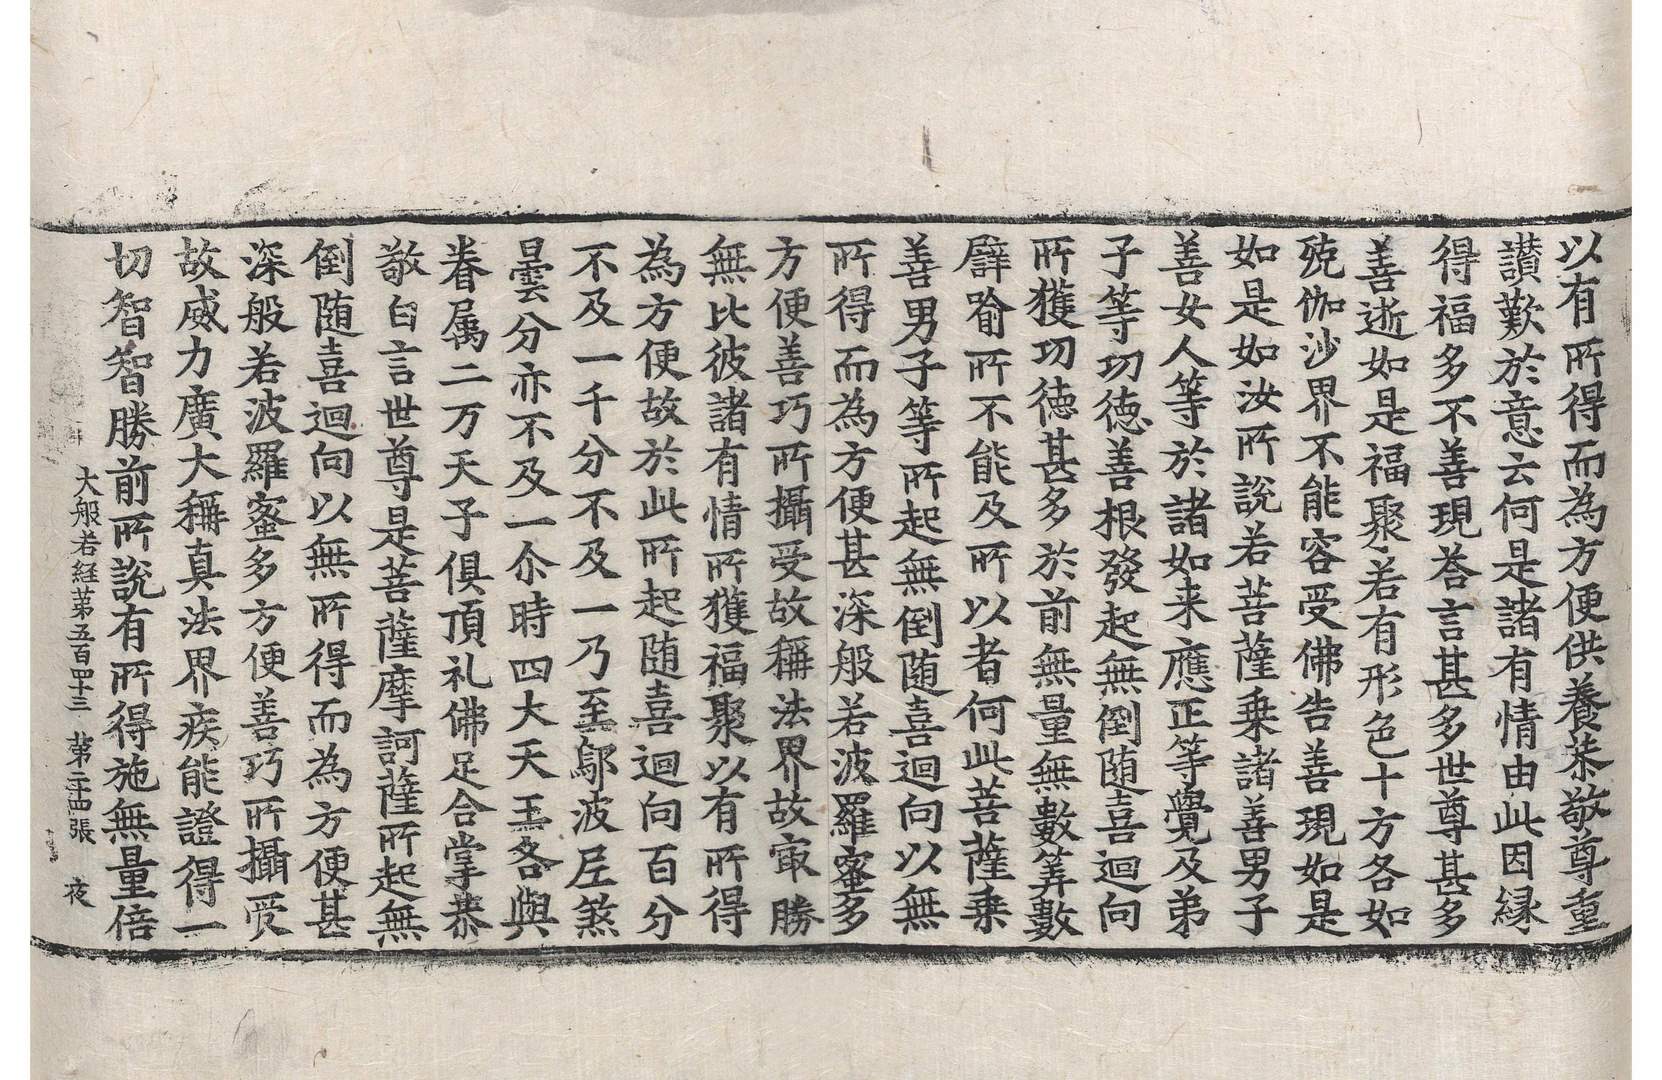 以有所得而為方便供養恭敬尊重
讃歎於意云何是諸有情由此因縁
得福多不善現荅言甚多世尊甚多
善逝如是福聚若有形色十方各如
殑伽沙界不能容受佛告善現如是
如是如汝所說若菩薩乗諸善男子
善女人等於諸如来應正等覺及弟
子等功徳善根發起無倒随喜迴向
所獲功徳甚多於前無量無數筭數
譬喻所不能及所以者何此菩薩乗
善男子等所起無倒随喜迴向以無
所得而為方便甚深般若波羅蜜多
方便善巧所攝受故稱法界故㝡勝
無比彼諸有情所獲福聚以有所得
為方便故於此所起随喜迴向百分
不及一千分不及一乃至鄔波尼煞
曇分亦不及一尒時四大天王各與
眷属二万天子俱頂礼佛足合掌恭
敬白言世尊是菩薩摩訶薩所起無
倒随喜迴向以無所得而為方便甚
深般若波羅蜜多方便善巧所攝受
故威力廣大稱真法界疾能證得一
切智智勝前所說有所得施無量倍
大般若経第五百四十三 第二十四張 夜